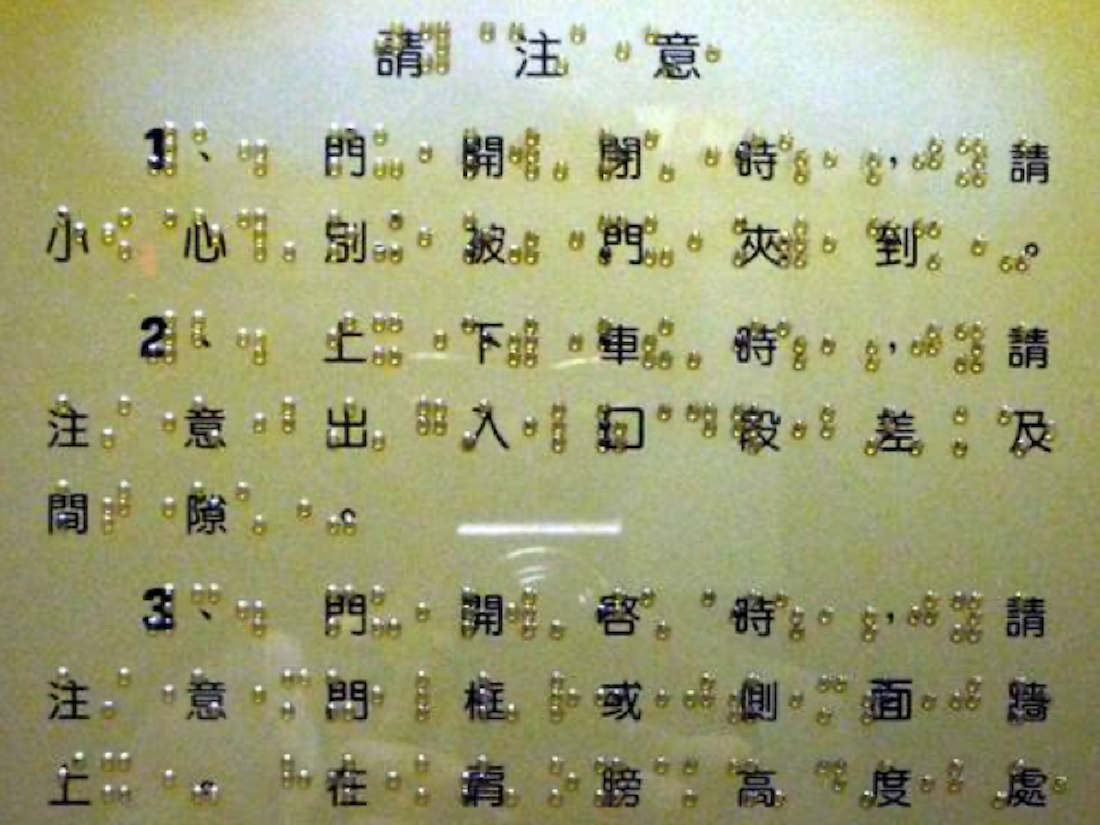 請注意
1、門開閉時，請
小心別被門夾到。
2、上下車時，請
注意出入口段差及
間隙。
3、門開啓時，請
注意門框或側面牆
上。在肩膀高度處